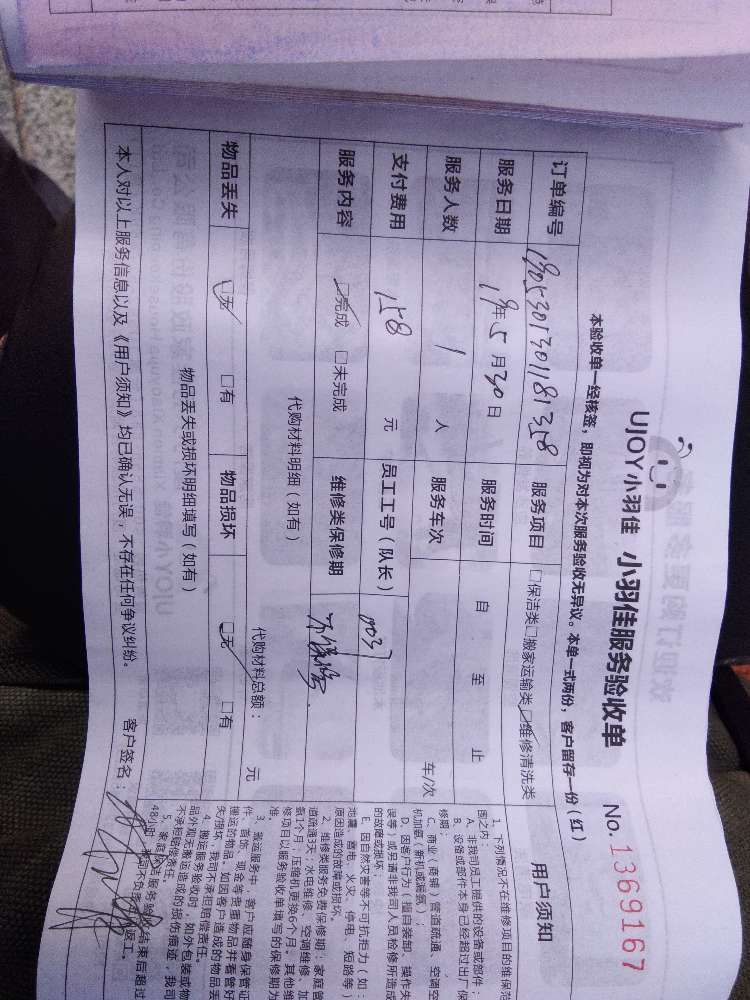 UJOY小羽佳 小羽佳服务验收单 No. 1369167
本验收单一经核签，即视为对本次服务验收无异议。本单一式两份，客户留存一份（红）
订单编号 服务项目 □保洁类□搬家运输类□维修清洗类
服务日期 19年5月30日 服务时间 自 至 止
服务人数 1 人 服务车次 车/次
支付费用 158 元 员工工号（队长）
服务内容 □完成 □未完成 维修类保修期
代购材料明细（如有） 代购材料总额： 元
物品丢失 □无 □有 物品损坏 □无 □有
物品丢失或损坏明细填写（如有）
本人对以上服务信息以及《用户须知》均已确认无误，不存在任何争议纠纷。 客户签名：
用户须知
1. 下列情况不在维修项目的维保范
围之内：
A. 非我司员工提供的设备或部件；
B. 设备或部件本身已经超过出厂保
修期；
C. 商业（商铺）管道疏通、空调空
机加氨（新机或漏氨）；
D. 因客户行为（擅自装卸、操作失
误等）或另请非我司人员检修所造成
的故障或损坏；
E. 因自然灾害等不可抗拒力（如：
地震、雷电、火灾、停电、短路等）
原因造成的故障或损坏。
2. 维修类服务免费保修期：家庭管
道疏通3天；水电维修、空调维修、加
氨1个月；压缩机更换6个月。其他维
修项目以服务验收单填写的保修期为
准。
3. 搬运服务中，客户应随身保管证
件、首饰、现金等贵重物品并看管好
搬运的物品。如因客户造成的物品丢
失/损坏，我司不承担赔偿责任。
4. 搬运服务验收时，如外包装或物
品外观无搬运造成的损伤痕迹，我司
不承担赔偿责任。
5. 家庭保洁服务验收结束后超过
48小时，我司不负责返工。